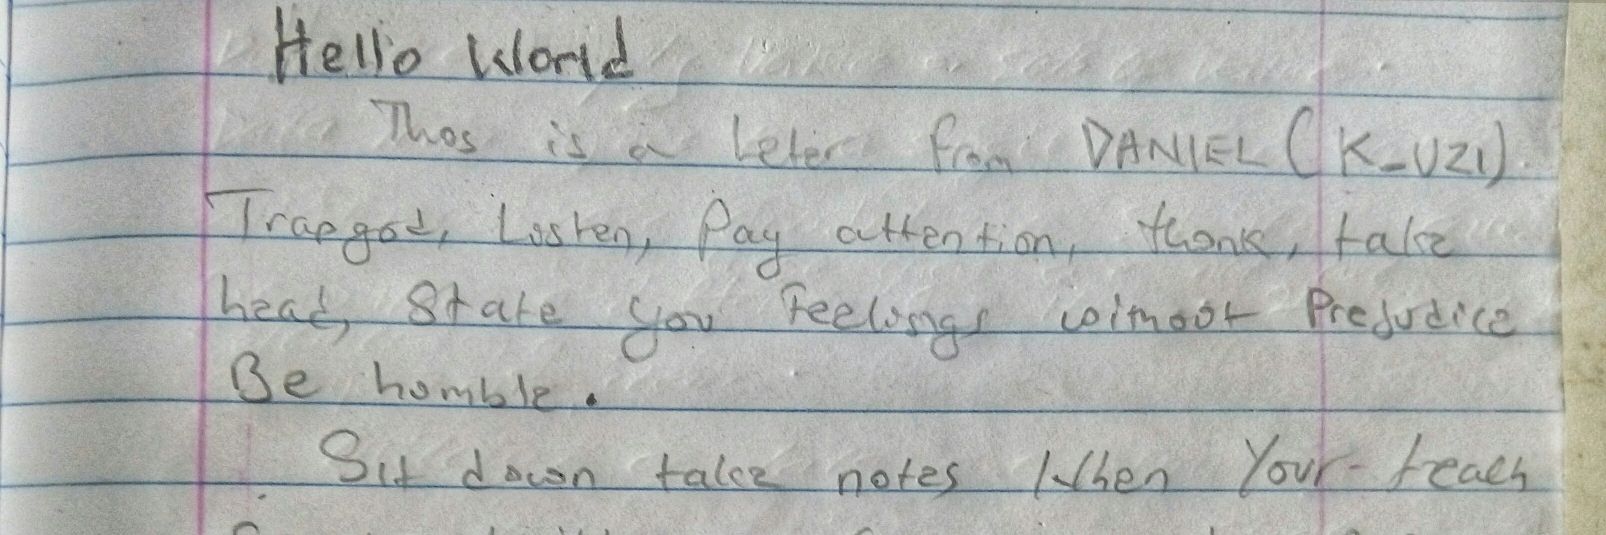 Hello World
Thos is a Leter from DANIEL (K-UZI).
Trapgod, Losten, Pay attention, thonk, take
head, State you Feelongs without Prejudice
Be homble.
Sit down take notes When Your teach